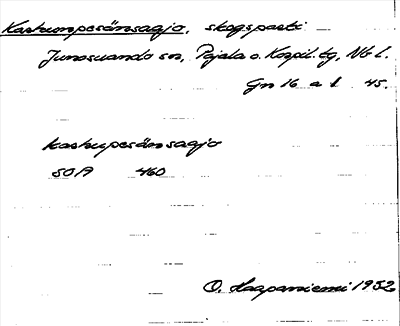 Karhunpesänsagjo, skogsparti
Junosuando sn, Pajala o. Korpil. tg, Nb l.
Gn 16 a l 45.
karhupesänsagjo
SOA 460
O. Haapaniemi 1932